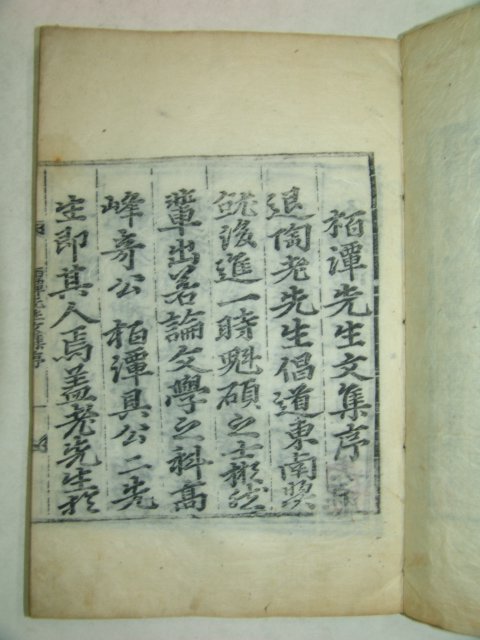 栢潭先生文集序
退陶老先生倡道東南奬
就後進一時魁碩之士彬然
輩出若論文學之科高
峰奇公 栢潭具公二先
生即其人焉盖老先生於
栢潭先生文集序 一